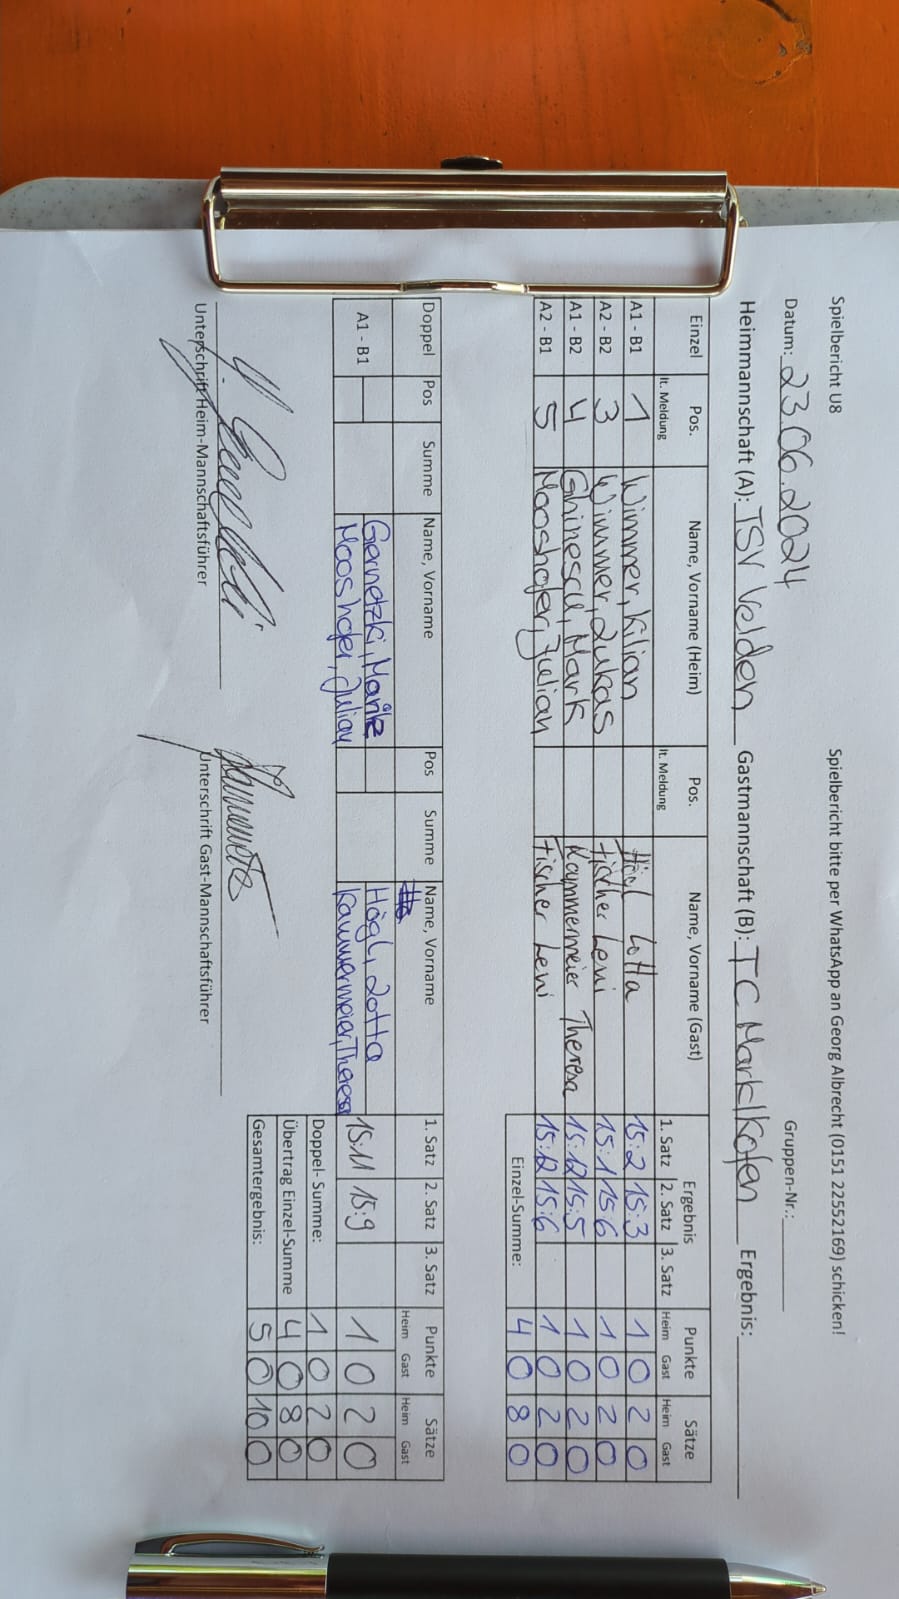 Spielbericht U8 Spielbericht bitte per WhatsApp an Georg Albrecht (0151 22552169) schicken!
Datum: 23.06.2024 Gruppen-Nr.:
Heimmannschaft (A): TSV Velden Gastmannschaft (B): TC Marklkofen Ergebnis:
Einzel Pos. lt. Meldung Name, Vorname (Heim) Pos. lt. Meldung Name, Vorname (Gast) Ergebnis Punkte Sätze
1. Satz 2. Satz 3. Satz Heim Gast Heim Gast
A1 - B1 1 Wimmer, Kilian Högl Lotta 15:2 15:3 1 0 2 0
A2 - B2 3 Wimmer, Lukas Fischer Leni 15:1 15:6 1 0 2 0
A1 - B2 4 Ghinescu, Mark Kammermeier Theresa 15:12 15:5 1 0 2 0
A2 - B1 5 Mooshofer, Julian Fischer Leni 15:12 15:6 1 0 2 0
Einzel-Summe: 4 0 8 0
Doppel Pos Summe Name, Vorname Pos Summe Name, Vorname 1. Satz 2. Satz 3. Satz Punkte Sätze
Heim Gast Heim Gast
A1 - B1 Gernetzki, Högl, Lotta 15:11 15:9 1 0 2 0
Mooshofer, Julian Kammermeier, Theresa
Doppel- Summe: 1 0 2 0
Übertrag Einzel-Summe 4 0 8 0
Gesamtergebnis: 5 0 10 0
Unterschrift Heim-Mannschaftsführer Unterschrift Gast-Mannschaftsführer